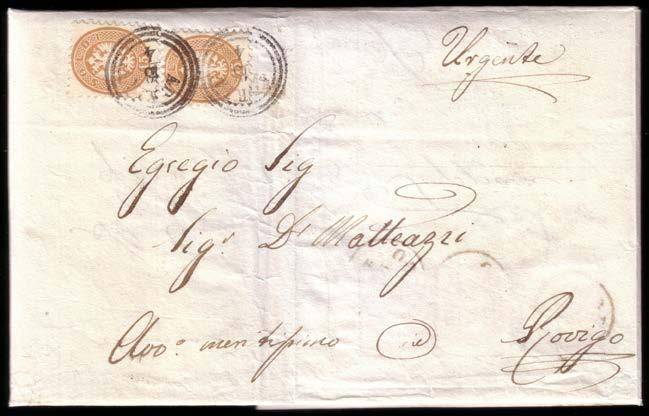 Urgente
Egregio Sig
Sigr Dr Matteazzi
Avvo meritissimo
Rovigo